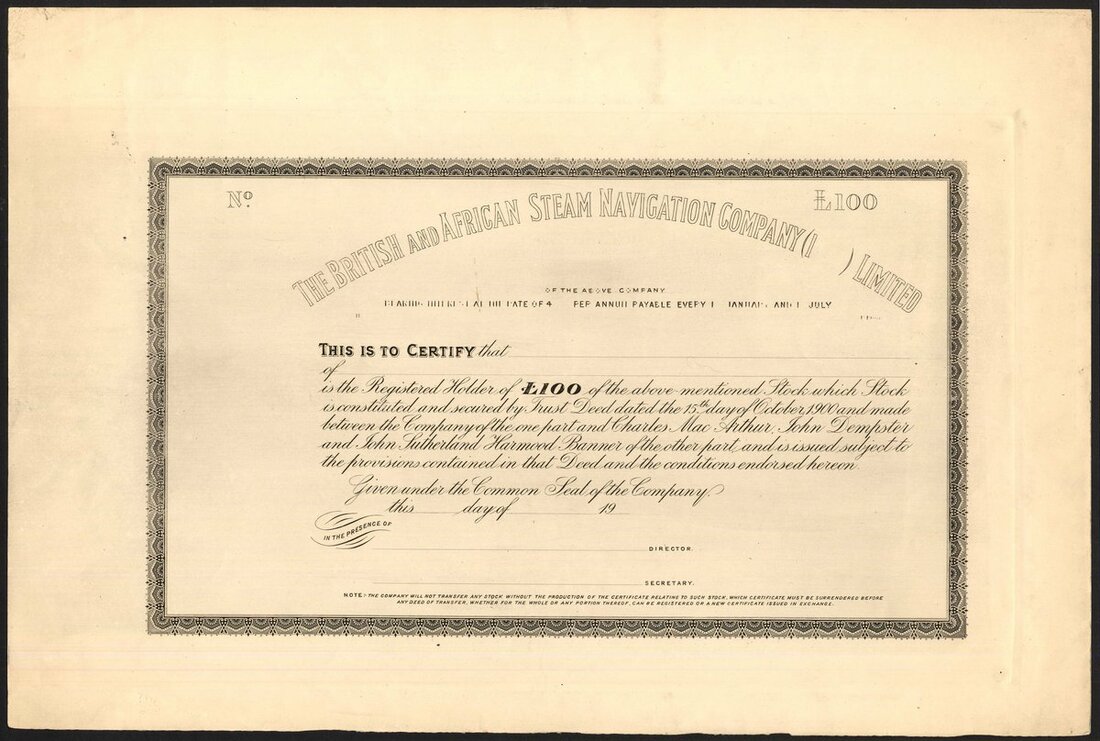 Nº £100
THE BRITISH AND AFRICAN STEAM NAVIGATION COMPANY (1 ) LIMITED
OF THE ABOVE COMPANY
RATE OF 4 PER ANNUM PAYABLE EVERY 1 JANUARY AND 1 JULY
THIS IS TO CERTIFY that
of
is the Registered Holder of £100 of the above-mentioned Stock which Stock
is constituted and secured by Trust Deed dated the 15th day of October, 1900 and made
between the Company of the one part and Charles Mac Arthur, John Dempster
and John Sutherland Harmood Banner of the other part, and is issued subject to
the provisions contained in that Deed and the conditions endorsed hereon.
Given under the Common Seal of the Company,
this day of 19
IN THE PRESENCE OF
DIRECTOR.
SECRETARY.
NOTE:- THE COMPANY WILL NOT TRANSFER ANY STOCK WITHOUT THE PRODUCTION OF THE CERTIFICATE RELATING TO SUCH STOCK, WHICH CERTIFICATE MUST BE SURRENDERED BEFORE
ANY DEED OF TRANSFER, WHETHER FOR THE WHOLE OR ANY PORTION THEREOF, CAN BE REGISTERED OR A NEW CERTIFICATE ISSUED IN EXCHANGE.